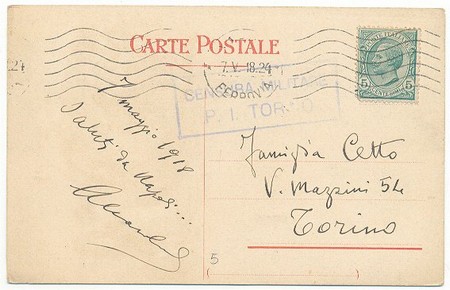 CARTE POSTALE
7.V.18.24
CENSURA MILITARE
P. I. TORINO
POSTE ITALIANE
5 5
CENTESIMI
7 maggio 1918
Saluti da Napoli...
Famiglia Cetto
V. Mazzini 54
Torino
5